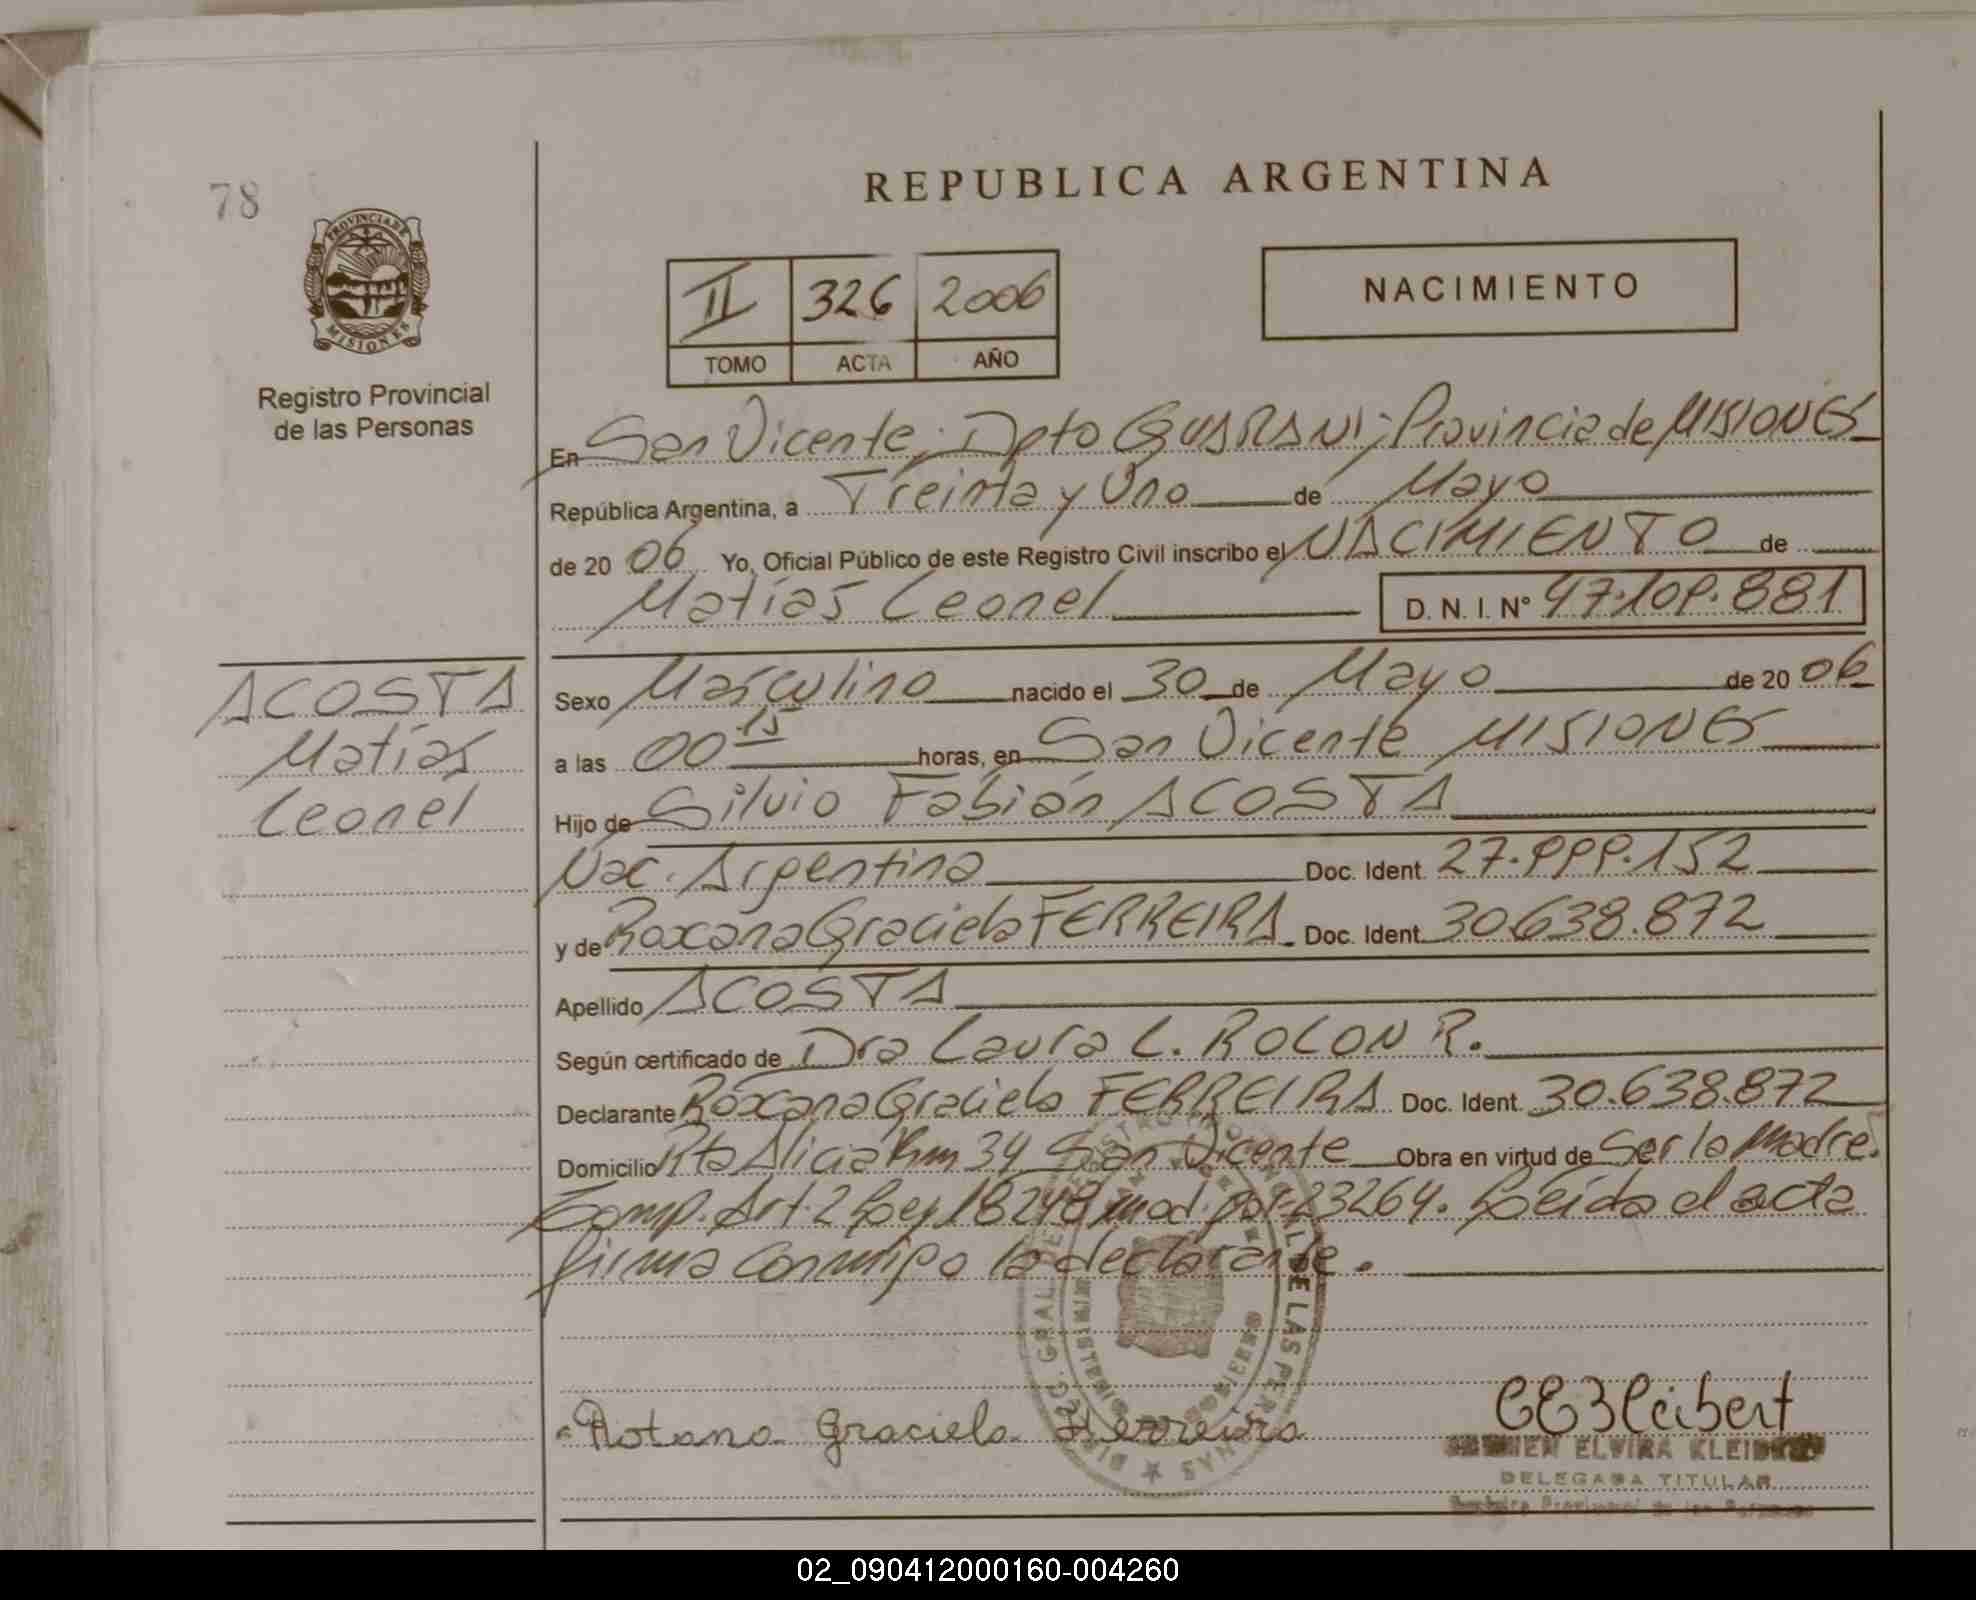 78
REPUBLICA ARGENTINA
PROVINCIA DE
MISIONES
Registro Provincial
de las Personas
II 326 2006
TOMO ACTA AÑO
NACIMIENTO
En San Vicente, Dpto GUARANI; Provincia de MISIONES
República Argentina, a Treinta y Uno de Mayo
de 20 06 Yo, Oficial Público de este Registro Civil inscribo el NACIMIENTO de
Matías Leonel D. N. I. Nº 47.109.881
ACOSTA
Matías
Leonel
Sexo Masculino nacido el 30 de Mayo de 20 06
a las 00 15 horas, en San Vicente MISIONES
Hijo de Silvio Fabián ACOSTA
Nac. Argentina Doc. Ident. 27.999.152
y de Roxana Graciela FERREIRA. Doc. Ident. 30.638.872
Apellido ACOSTA
Según certificado de Dra Laura L. ROLON R.
Declarante Roxana Graciela FERREIRA Doc. Ident. 30.638.872
Domicilio Rta Alicia Km 34 San Vicente Obra en virtud de Ser la Madre.
Comp. Art. 2 Ley 18248 mod. por 23264. Leída el acta
firma conmigo la declarante.
Roxana Graciela Ferreira
CEKleibert
CARMEN ELVIRA KLEIBERT
DELEGADA TITULAR
DE LAS PERSONAS
02_090412000160-004260